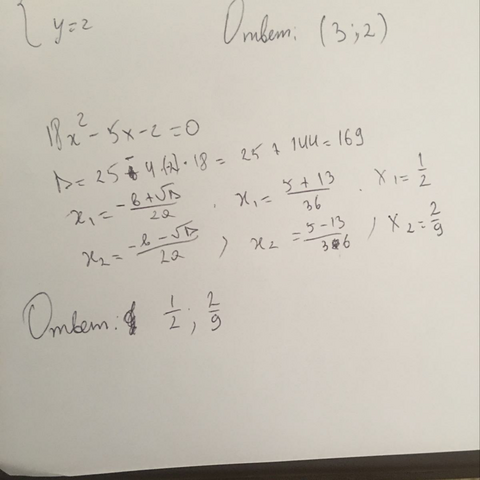 { y=2
Ответ: (3;2)
18x² - 5x - 2 = 0
D = 25 - 4·(-2)·18 = 25 + 144 = 169
x₁ = -b+√D/2a , x₁ = 5+13/36 . x₁ = 1/2
x₂ = -b-√D/2a ; x₂ = 5-13/36 ; x₂ = 2/9
Ответ: 1/2 ; 2/9